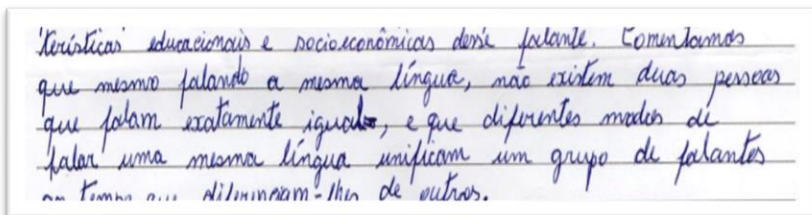 terísticas educacionais e socioeconômicas desse falante. Comentamos
que mesmo falando a mesma língua, não existem duas pessoas
que falam exatamente igual, e que diferentes modos de
falar uma mesma língua unificam um grupo de falantes
ao tempo que diferenciam-lhes de outros.